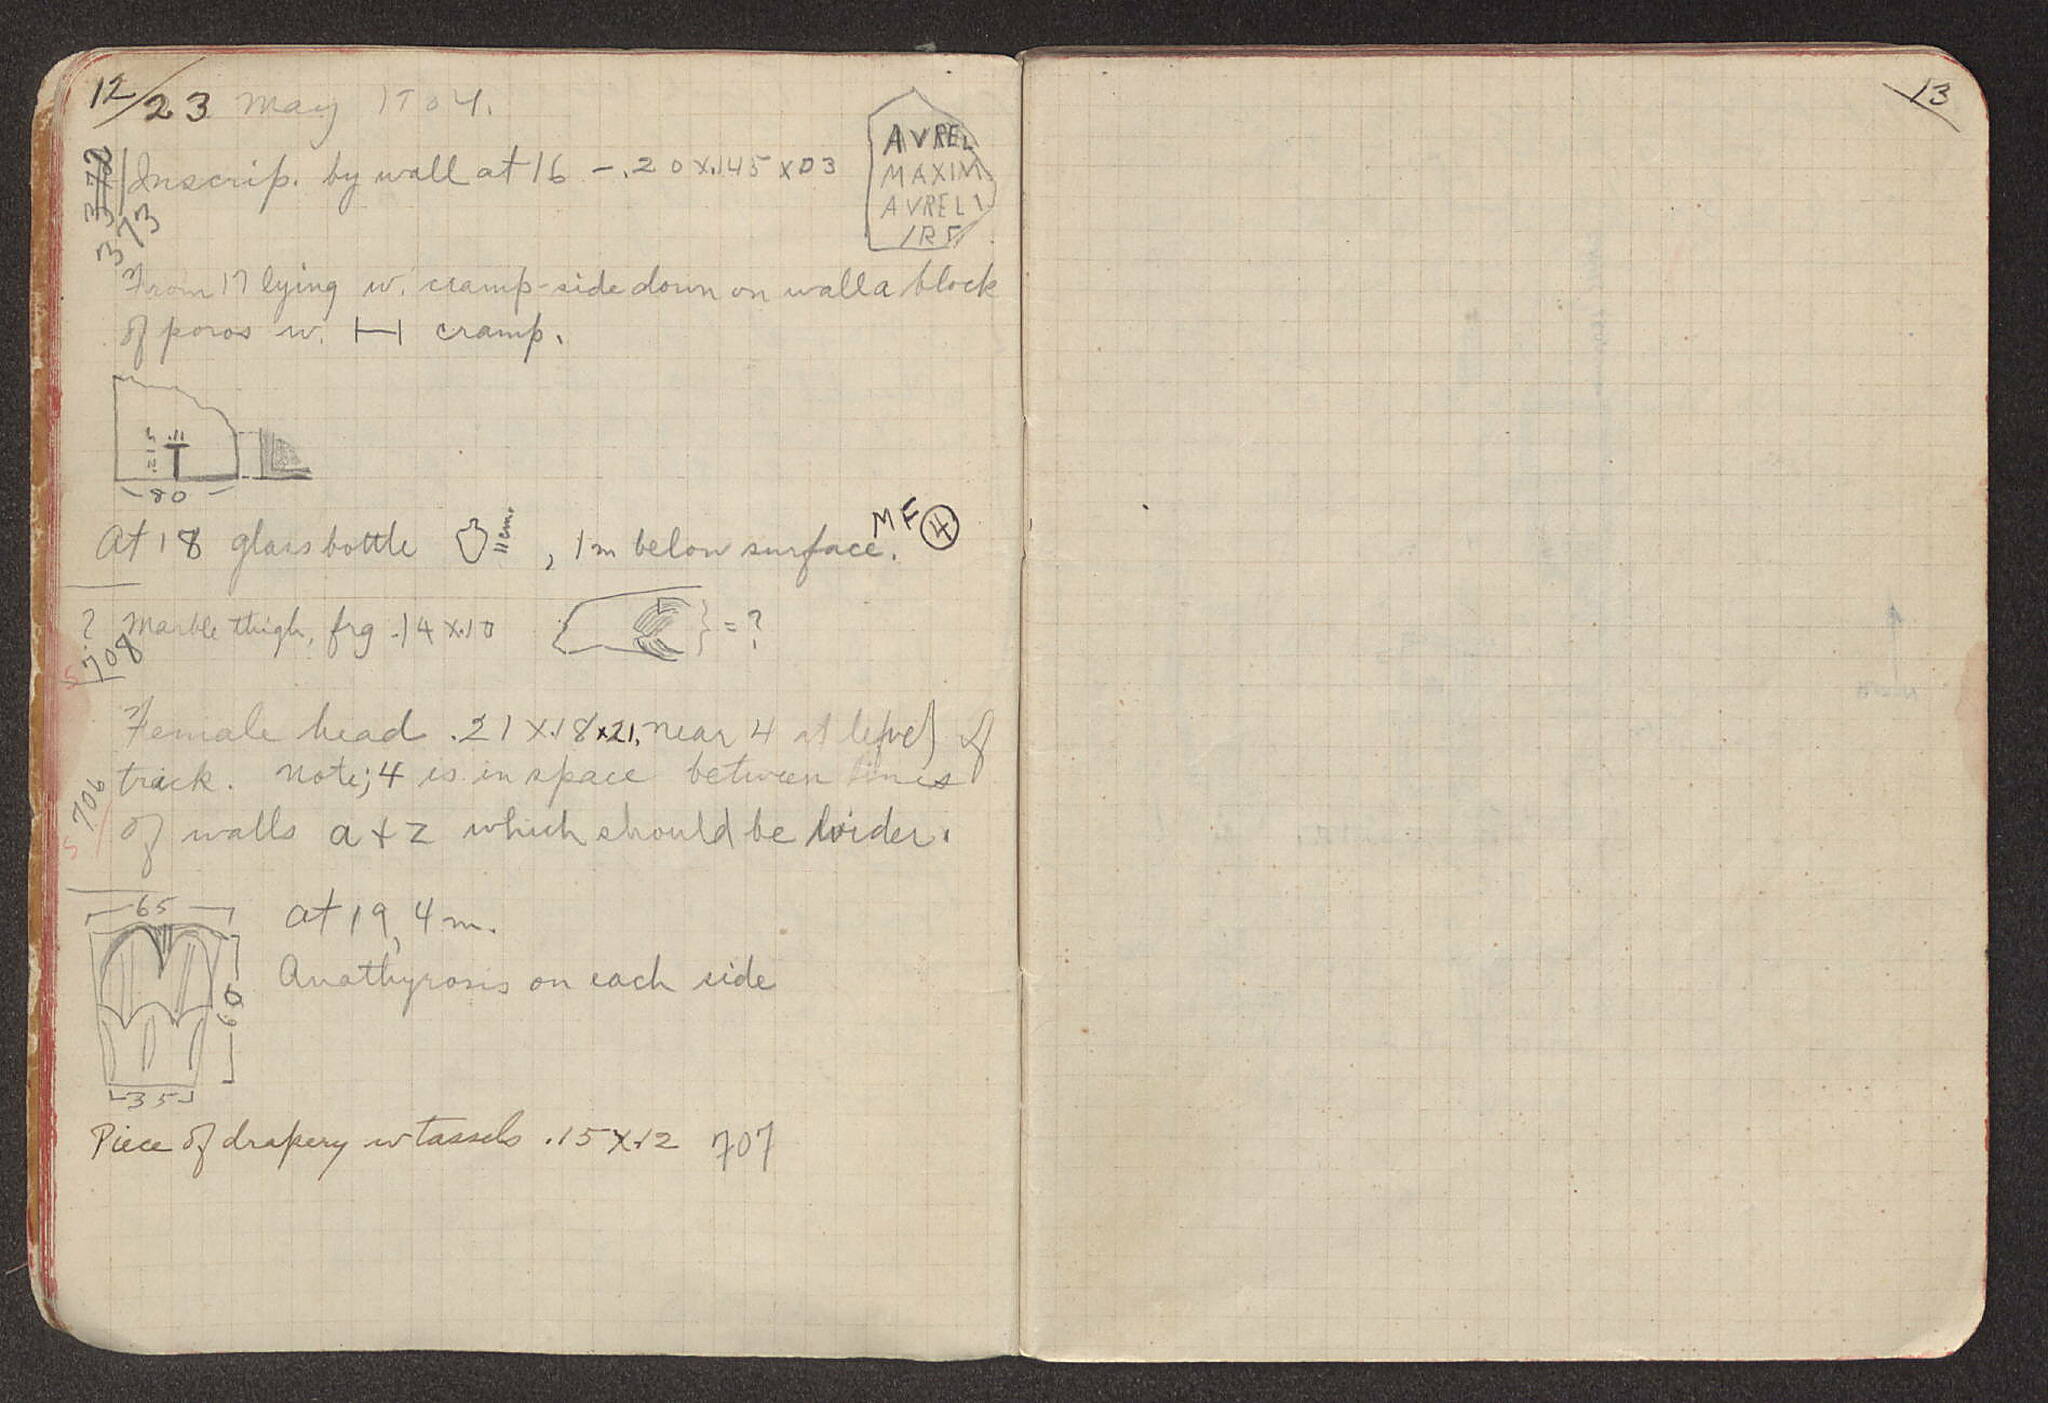 12
23 May 1904.
372
373
Inscrip. by wall at 16 - .20 x .145 x 03
AVREL
MAXIM
AVRELI
IRE
From 17 lying w. cramp-side down on wall a block
of poros w. H cramp.
.11
.215
80
At 18 glass bottle 11 cm. , 1 m below surface. MF 4
? Marble thigh, frg .14 x .10 } = ?
S 708
Female head .21 x .18 x 21, near 4 at level of
track. Note; 4 is in space between lines
of walls a + z which should be wider.
S 706
65
60
35
at 19, 4 m.
Anathyrosis on each side
Piece of drapery w tassels .15 x .12 707
13